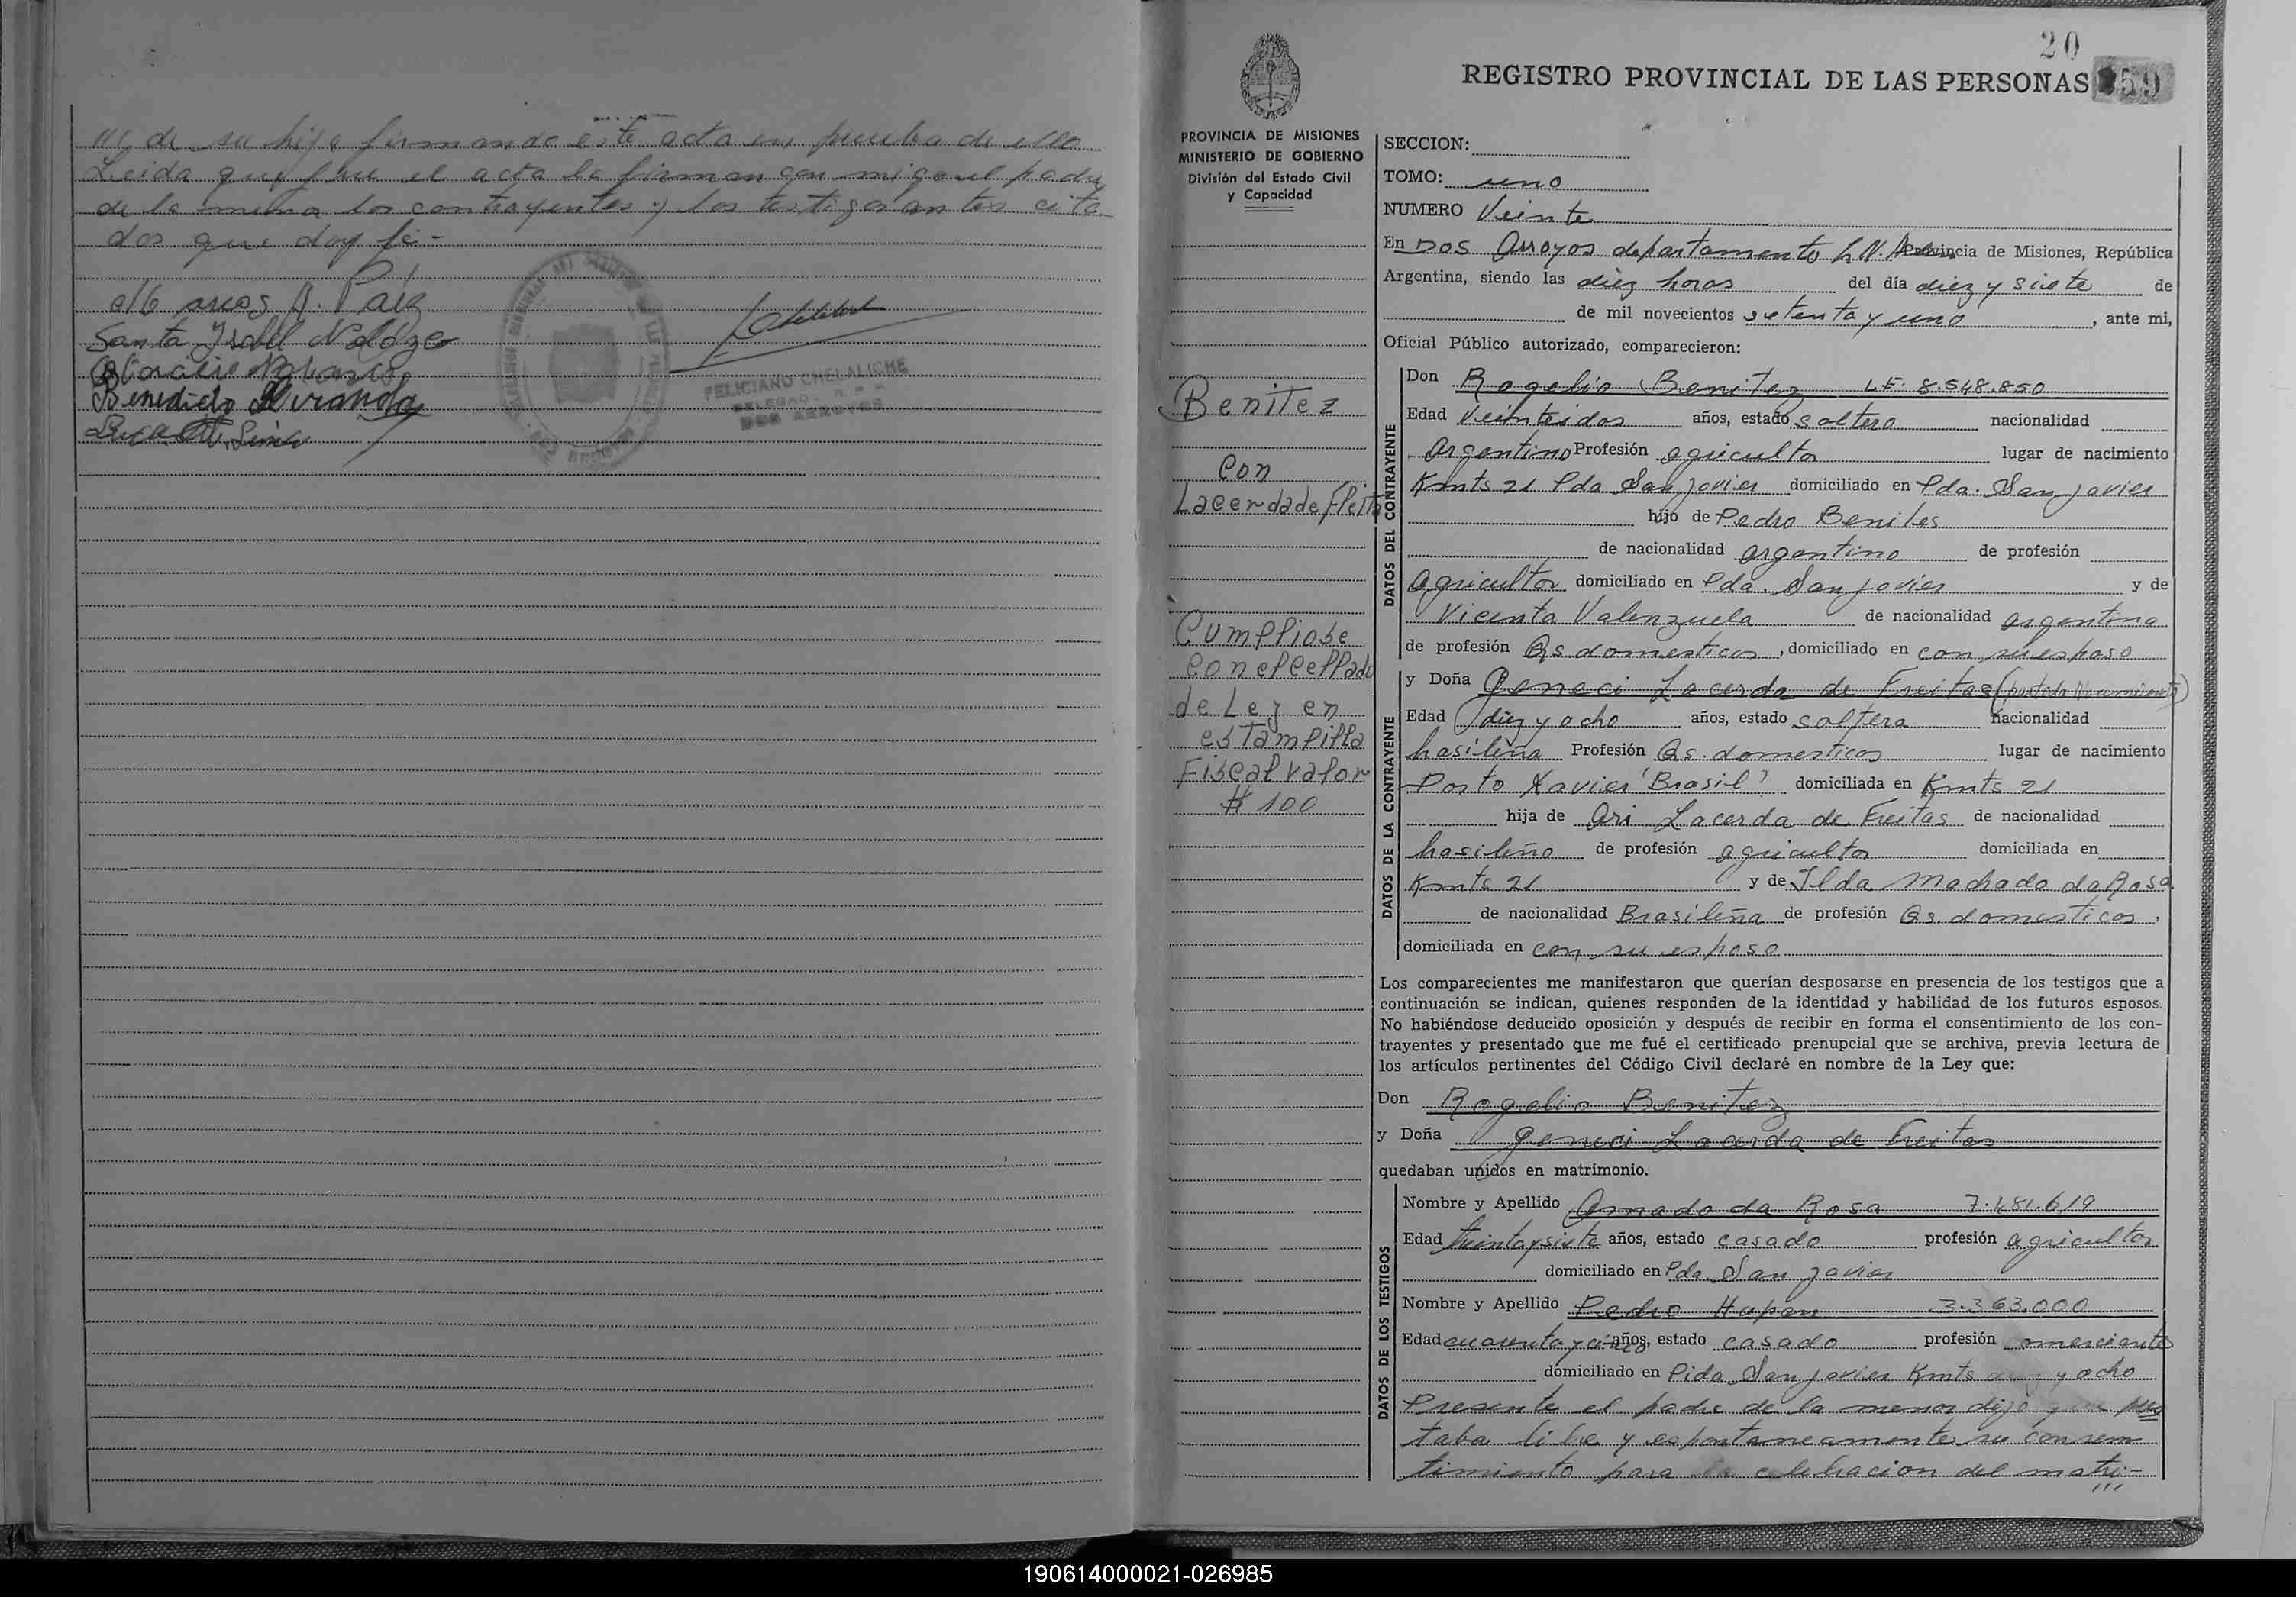 /// de su hija firmando este acta en prueba de ello
Leida que fue el acta la firman con migo el padre
de la menor los contrayentes y los testigos antes cita-
dos que doy fé-
Santa Ysabel
Benedicto Miranda
FELICIANO CHELALICHE
DELEGADO
DOS ARROYOS
20
REGISTRO PROVINCIAL DE LAS PERSONAS
59
PROVINCIA DE MISIONES
MINISTERIO DE GOBIERNO
División del Estado Civil
y Capacidad
Benitez
con
Lacerda de Freitas
Cumpliose
con el cellado
de Ley en
estampilla
Fiscal valor
$ 100
SECCION:
TOMO: uno
NUMERO Veinte
En Dos Arroyos departamento L.N. Alem Provincia de Misiones, República
Argentina, siendo las diez horas del día diez y siete de
de mil novecientos setenta y uno, ante mi,
Oficial Público autorizado, comparecieron:
DATOS DEL CONTRAYENTE
Don Rogelio Benitez L.E. 8.548.850
Edad Veintidos años, estado soltero nacionalidad
Argentino Profesión agricultor lugar de nacimiento
Kmts 21 Pda San Javier domiciliado en Pda. San Javier
hijo de Pedro Benites
de nacionalidad argentino de profesión
agricultor domiciliado en Pda. San Javier y de
Vicenta Valenzuela de nacionalidad argentina
de profesión Qs domesticos, domiciliado en con su esposo
DATOS DE LA CONTRAYENTE
y Doña Geneci Lacerda de Freitas (partida Nacimiento)
Edad diez y ocho años, estado soltera nacionalidad
brasileña Profesión Qs. domesticos lugar de nacimiento
Porto Xavier (Brasil) domiciliada en Kmts 21
hija de Ari Lacerda de Freitas de nacionalidad
brasileño de profesión agricultor domiciliada en
Kmts 21 y de Ilda Machado da Rosa
de nacionalidad Brasileña de profesión Qs. domesticos,
domiciliada en con su esposo
Los comparecientes me manifestaron que querían desposarse en presencia de los testigos que a
continuación se indican, quienes responden de la identidad y habilidad de los futuros esposos.
No habiéndose deducido oposición y después de recibir en forma el consentimiento de los con-
trayentes y presentado que me fué el certificado prenupcial que se archiva, previa lectura de
los artículos pertinentes del Código Civil declaré en nombre de la Ley que:
Don Rogelio Benitez
y Doña Geneci Lacerda de Freitas
quedaban unidos en matrimonio.
DATOS DE LOS TESTIGOS
Nombre y Apellido Amado da Rosa 7.481.619
Edad treinta y siete años, estado casado profesión agricultor
domiciliado en Pda. San Javier
Nombre y Apellido Pedro Hupan 3.363.000
Edad cuarenta y cinco años, estado casado profesión comerciante
domiciliado en Pida San Javier Kmts y ocho
Presente el padre de la menor dijo que pres
taba libre y espontaneamente su consen
timiento para la celebracion del matri-
///
190614000021-026985